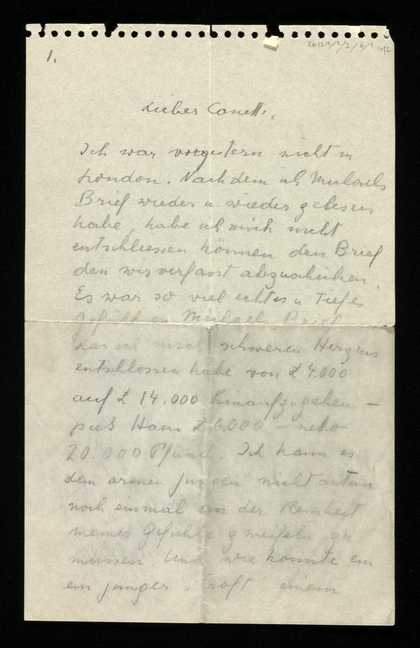 1.
Lieber Canetti,
Ich war vorgestern nicht in
London. Nachdem ich Milochs
Brief wieder u wieder gelesen
habe, habe ich mich nicht
entschliessen können den Brief
den wir verfasst abzuschicken.
Es war so viel echtes u Tiefes
Gefühl in Brief
schweren Herzens
entschlossen habe von £ 4.000
auf £ 14.000 hinaufzugehen –
plus Haus £ 6.000 –
20.000 Pfund. Ich kann es
dem armen Jungen nicht antun
noch einmal an der Reinheit
meines Gefühls zweifeln zu
müssen. Und wie könnte ein
ein junger, einem